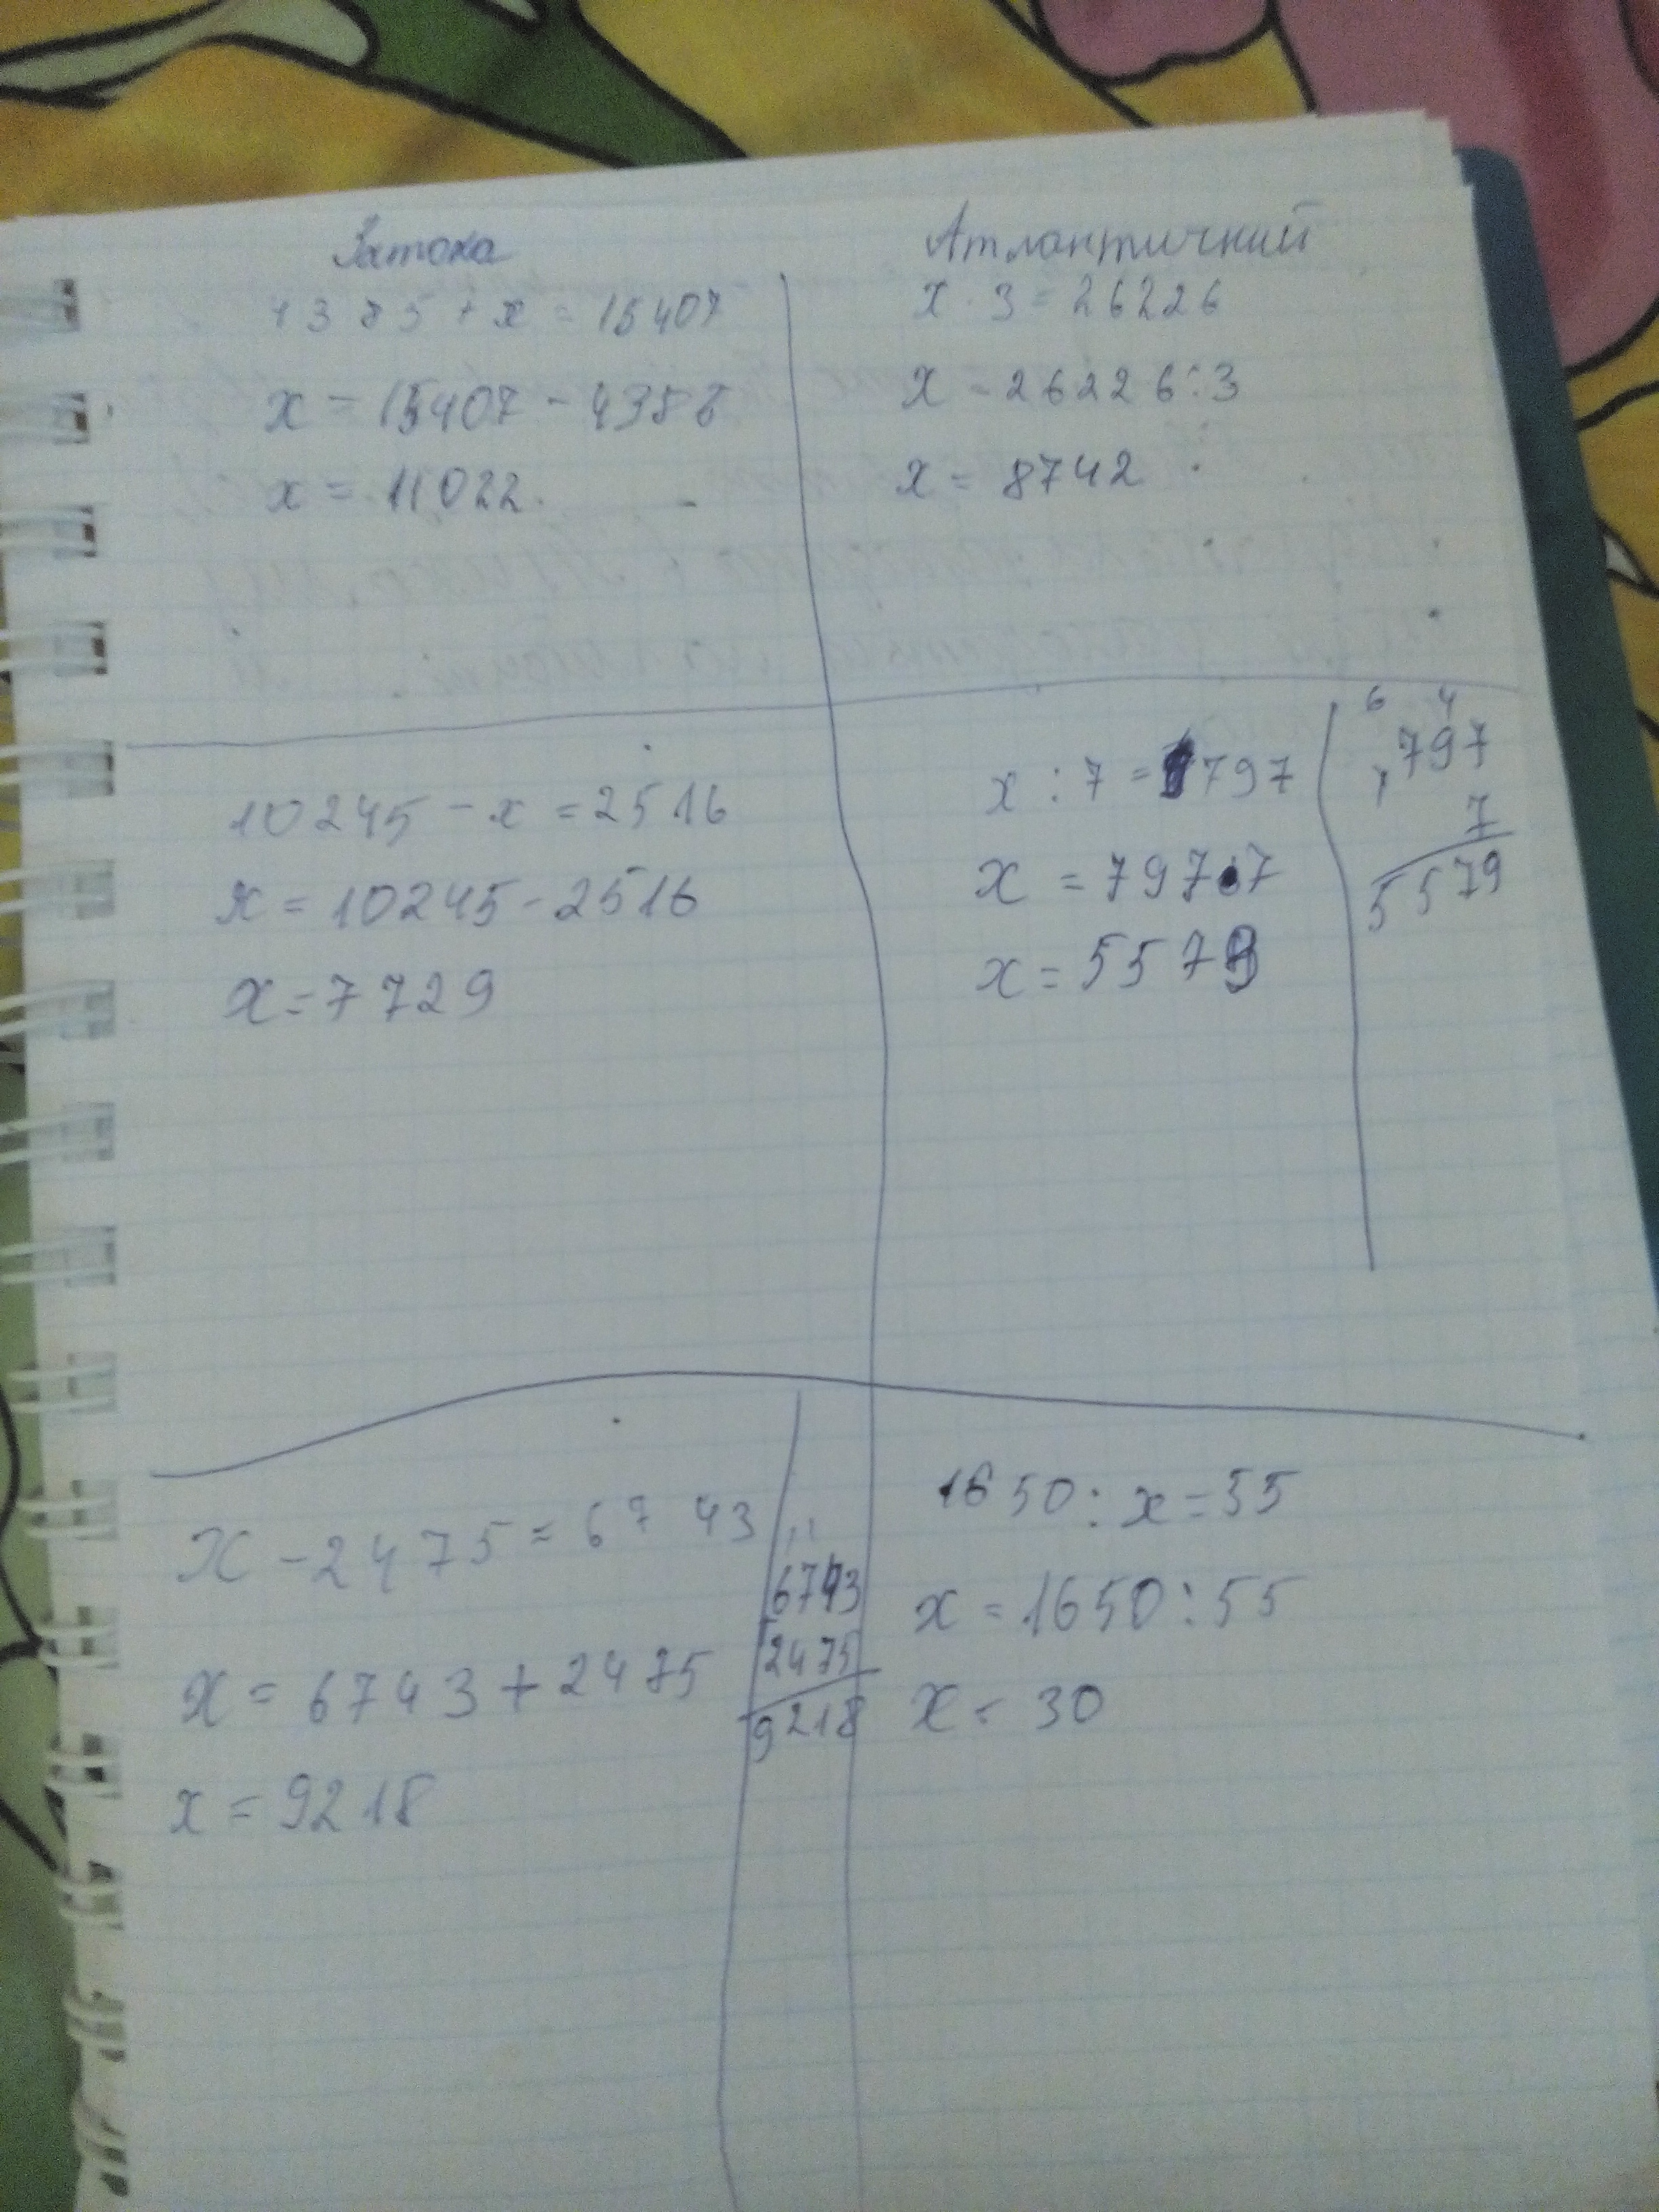 Затока
4375 + x = 15407
x = 15407 - 4385
x = 11022.
Атлантичний
x · 3 = 26226
x = 26226 : 3
x = 8742
10245 - x = 2516
x = 10245 - 2516
x = 7729
x : 7 = 797
x = 797 · 7
x = 5579
6 4
797
7
5579
x - 2475 = 6743
x = 6743 + 2475
x = 9218
6743
2475
9218
1650 : x = 55
x = 1650 : 55
x = 30